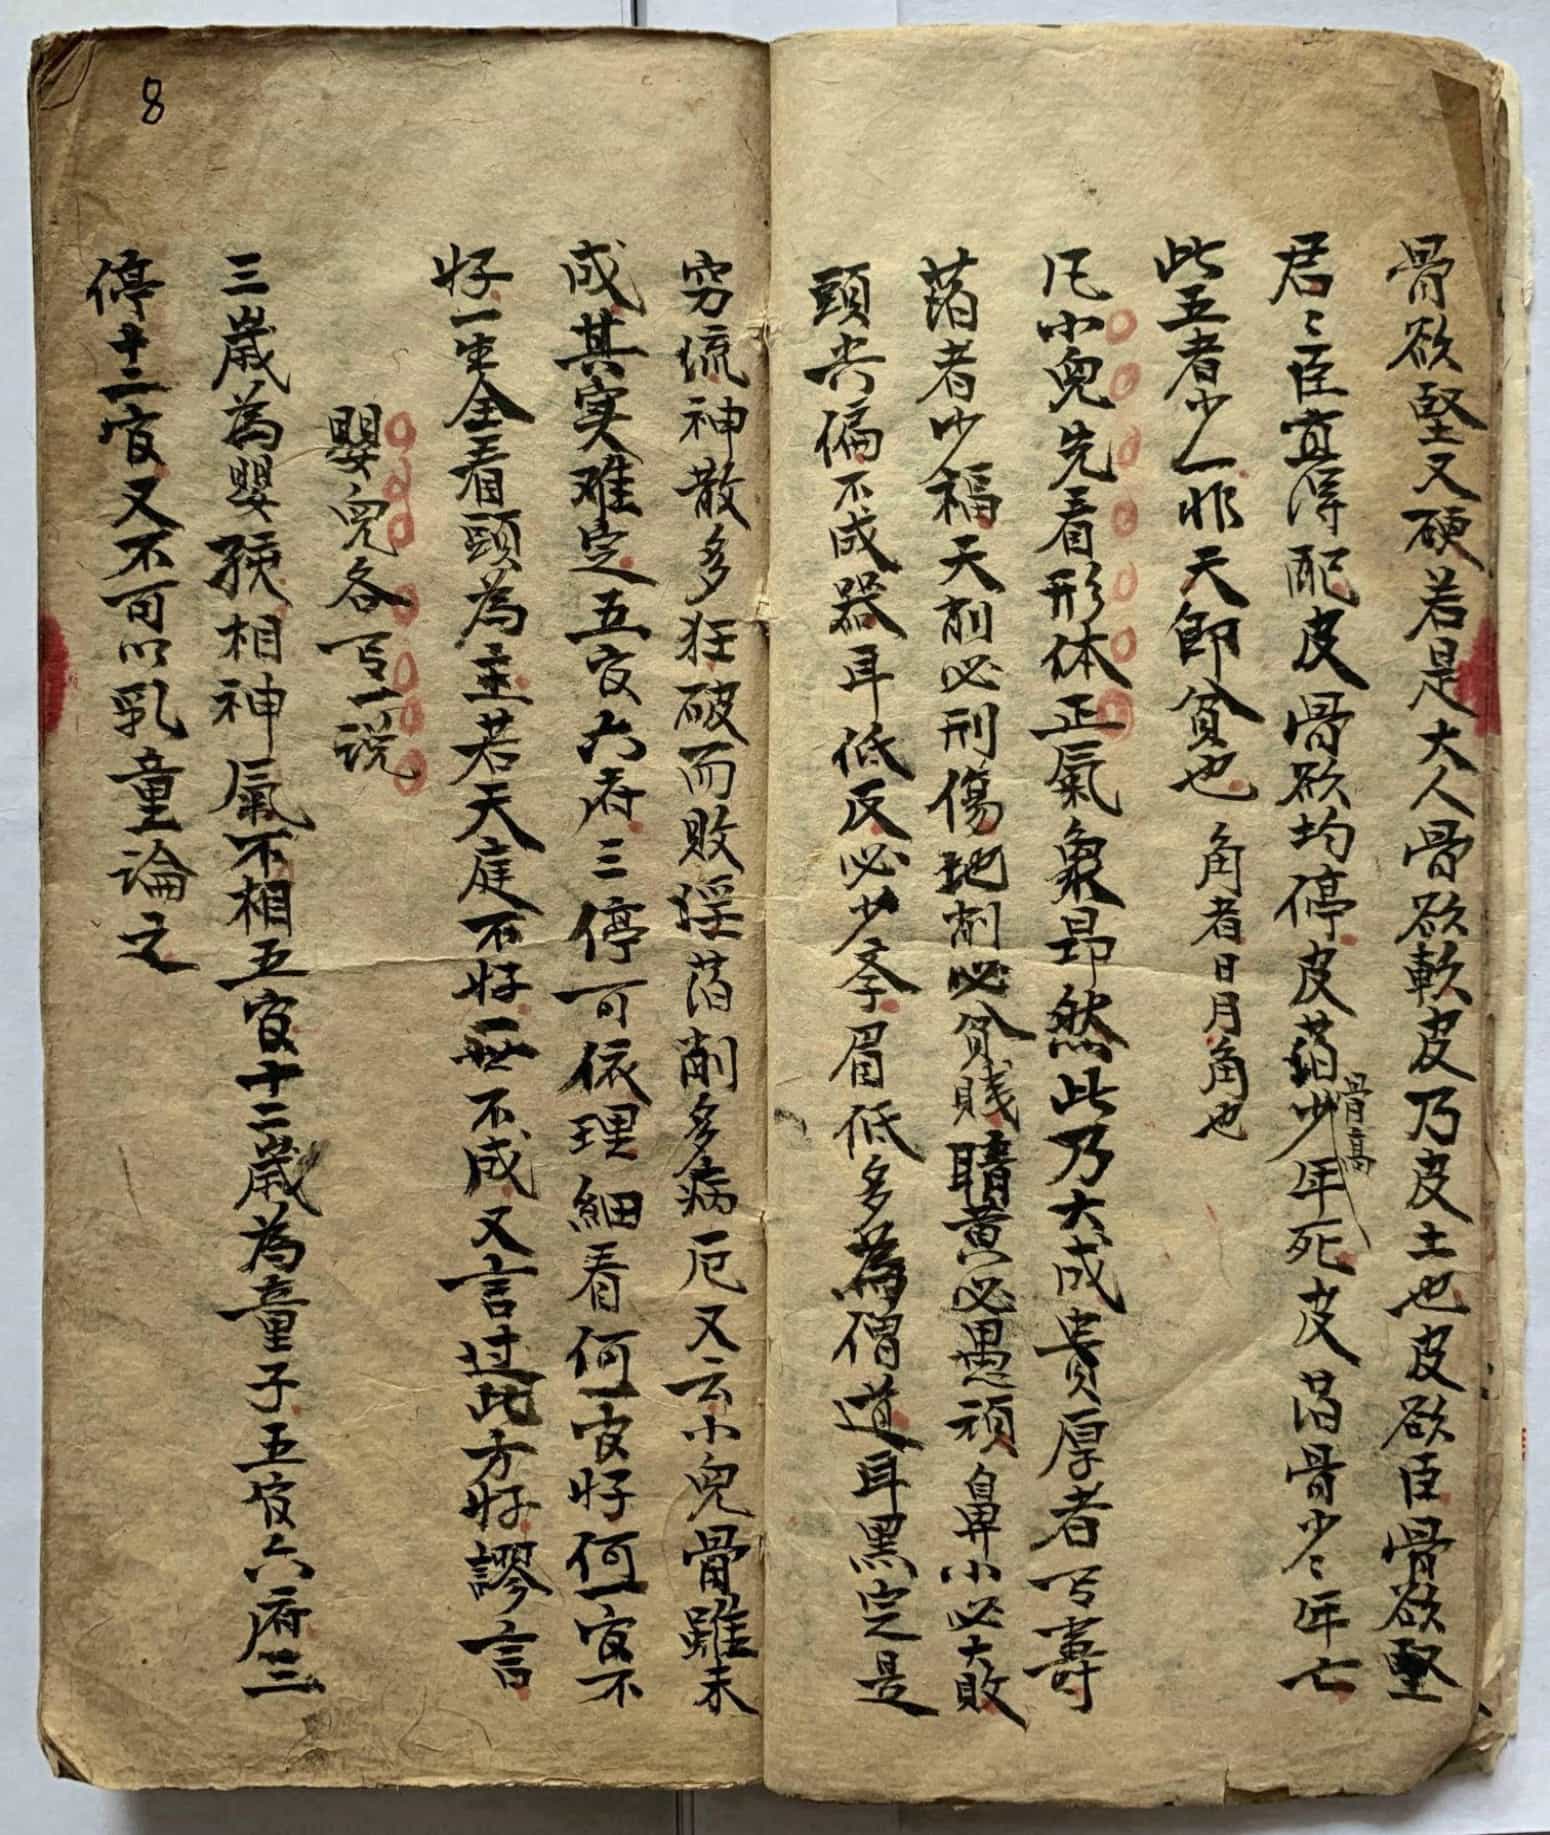 骨欲堅又硬若是大人骨欲軟皮乃皮土也皮欲臣骨欲堅
君〻臣宜得配皮骨欲均停皮薄骨高少年死皮薄骨少〻年亡
此五者少一非夭即貧也 角者日月角也
凡小兒先看形体正氣象昂然此乃大成貴厚者丐壽
薄者少福天削必刑傷地削必貧賤睛黃必愚頑鼻小必大敗
頭尖偏不成器耳低反必少夲眉低多為僧道耳黑定是
窮流神散多狂破而敗淫薄削多病厄又云小兒骨雖未
成其实难定五官六府三停可依理細看何一官好何一官不
好一生全看頭為主若天庭不好無不成又言过此方好謬言
嬰兒各丐一説
三歲為嬰孩相神氣不相五官十二歲為童子五官六府三
停十二官又不可以乳童論之
8